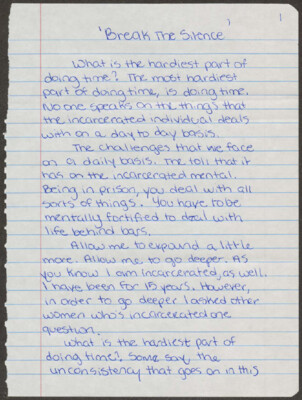 1
'Break The Silence
What is the hardiest part of
doing time? The most hardiest
part of doing time, is doing time.
No one speaks on the things that
the incarcerated individual deals
with on a day to day basis.
The challenges that we face
on a daily basis. The toll that it
has on the incarcerated mental.
Being in prison, you deal with all
sorts of things. You have to be
mentally fortified to deal with
life behind bars.
Allow me to expound a little
more. Allow me, to go deeper. As
you know I am incarcerated, as well.
I have been for 15 years. However,
in order to go deeper I asked other
women who's incarcerated one
question.
What is the hardiest part of
doing time? Some say, the
unconsistency that goes on in this